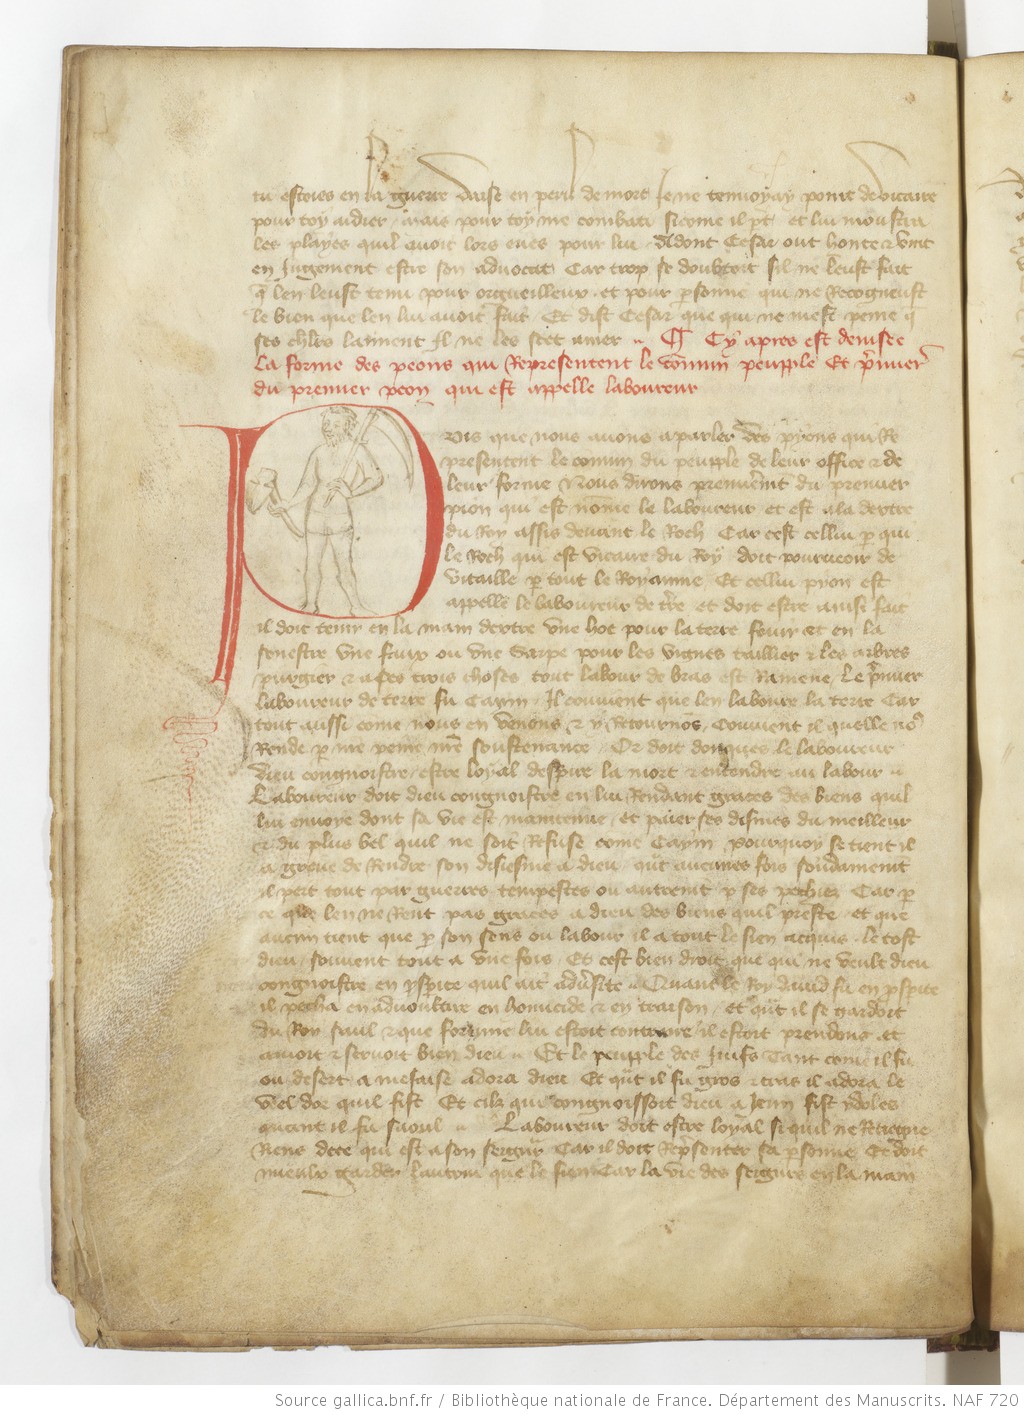 tu estoies en la guerre daise en peril de mort Je ne tenvoyay point de vicaire
pour toy aidier mais pour toy me combati sicome il pt et lui moustra
les playes quil avoit lors eues pour lui Adont Cesar out honte & vint
en Jugement estre son advocat Car trop se doubtoit sil ne leust fait
q len leust tenu pour orgueilleux et pour psonne qui ne Recogneust
le bien que len lui avoit fait Et dist Cesar que qui ne mest peine q
ses chlrs laiment Il ne les scet amer ¶ Cy apres est devisee
La forme des peons qui Representent le comun peupple Et pmier
du premier peon qui est appelle laboureur
Puis que nous avons a parler des pyons qui Re
presentent le comun du peupple de leur office & de
leur forme Nous dirons premieremt du premier
pion qui est nome le laboureur et est a la dextre
du Roy assis devant le Roch Car cest cellui p qui
le Roch qui est vicaire du Roy doit pourveoir de
vitaille p tout le Royaume Et cellui pyon est
appelle le laboureur de tre et doit estre ainsi fait
il doit tenir en la main dextre une hoe pour la terre fouir et en la
senestre une faux ou une sarpe pour les vignes taillier & les arbres
purgier & a ses trois choses tout labour de bras est Ramene Le pmier
laboureur de terre fu Caym Il convient que len laboure la terre Car
tout aussi come nous en venons & y Retournos Convient il quelle no9
Rende p me peine nre soustenance Or doit donques le laboureur
dieu congnoistre estre loyal despire la mort & entendre au labour
Laboureur doit dieu congnoistre en lui Rendant graces des biens quil
lui envoye dont sa vie est maintenue et paier ses dismes du meilleur
& du plus bel quil ne soit Refuse come Caym pourquoy se tient il
a greve de Rendre son disiesme a dieu qut aucunes fois soudainemt
il pert tout par guerres tempestes ou autremt p ses pechiez Car p
ce que len ne Rent pas graces a dieu des biens quil preste et que
aucun tient que p son sens ou labour il a tout le sien acquis le tost
dieu souvent tout a une fois Et cest bien droit que qui ne veult dieu
congnoistre en pspite quil ait adversite Quant le Roy david fu en pspite
il pecha en advoultire en homicide & en traison et qut il se gardoit
du Roy saul & que fortune lui estoit contraire il estoit preudons et
amoit & servoit bien dieu Et le peupple des Juifs Tant come il fu
ou desert a mesaise adora dieu Et qut il fu gros & cras il adora le
veel dor quil fist Et cilz qui congnoissoit dieu a Jeun fist ydoles
quant il fu saoul Laboureur doit estre loyal si quil ne Retiegne
Riens de ce qui est a son seigur Car il doit Repsenter sa psonne Et doit
mieulx garder lautrui que le sien Car la vie des seigurs est en la main
Source gallica.bnf.fr / Bibliothèque nationale de France. Département des Manuscrits. NAF 720